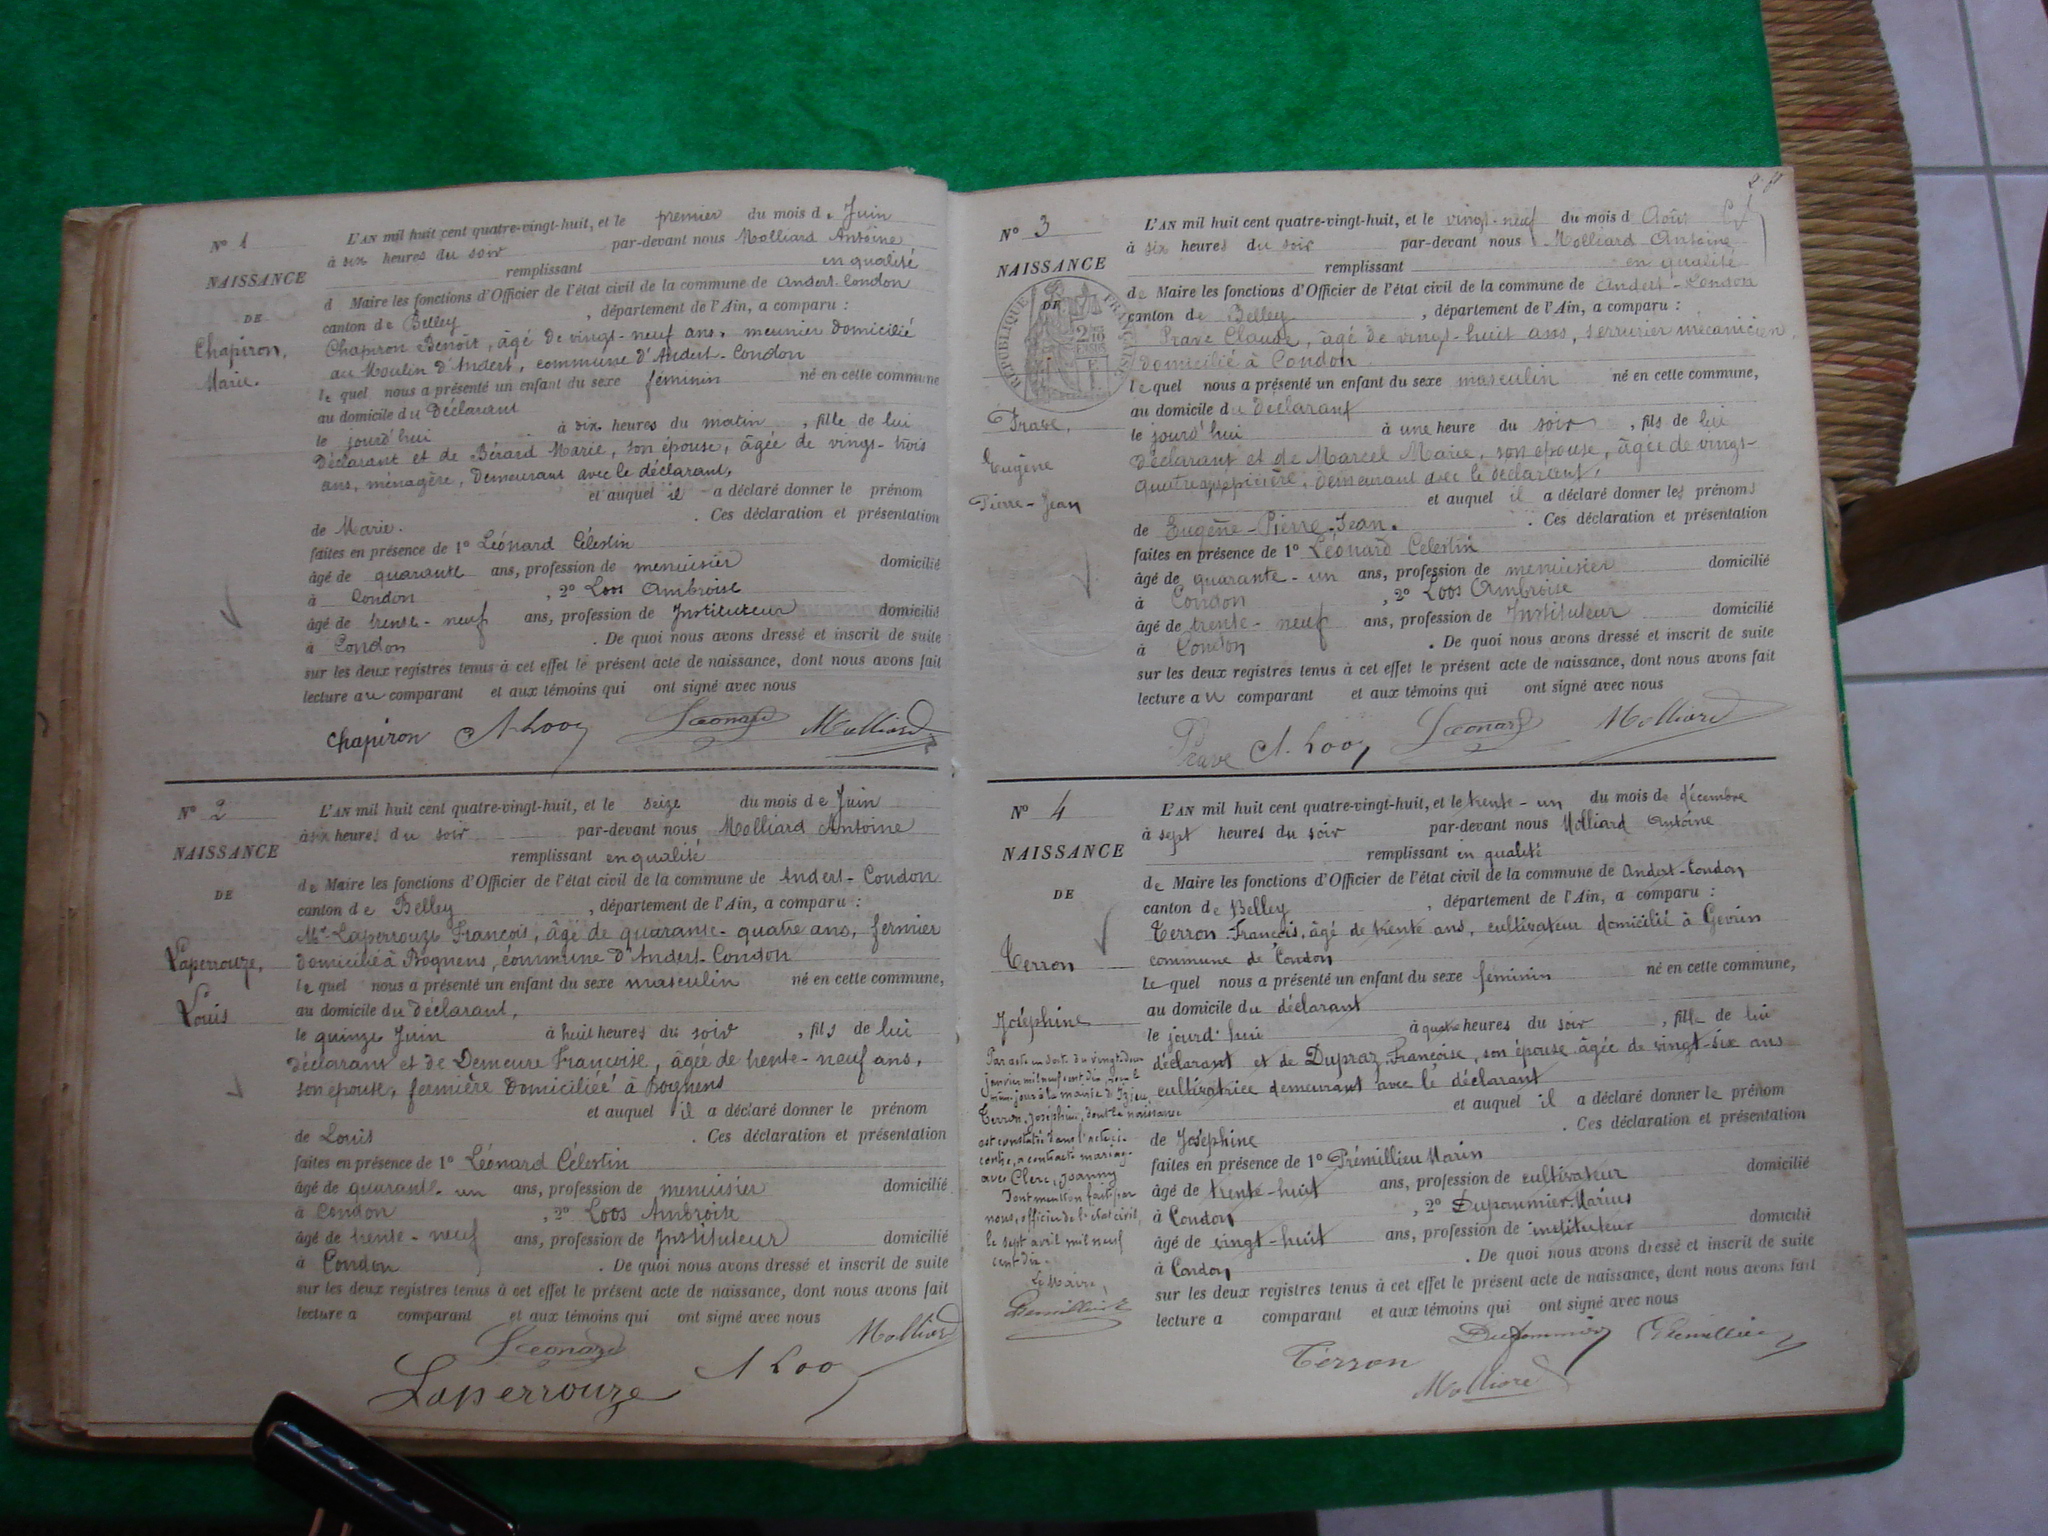 N° 1
NAISSANCE
DE
Chapiron,
Marie.
L'AN mil huit cent quatre-vingt-huit, et le premier du mois de Juin
à six heures du soir par-devant nous Molliard Antoine
remplissant en qualité
d Maire les fonctions d'Officier de l'état civil de la commune de Andert-Condon
canton de Belley, département de l'Ain, a comparu :
Chapiron Benoît, âgé de vingt-neuf ans, meunier domicilié
au Moulin d'Andert, commune d'Andert-Condon
lequel nous a présenté un enfant du sexe féminin né en cette commune
au domicile du Déclarant
le jourd'hui à six heures du matin, fille de lui
Déclarant et de Bérard Marie, son épouse, âgée de vingt-trois
ans, ménagère, Demeurant avec le déclarant,
et auquel il a déclaré donner le prénom
de Marie. Ces déclaration et présentation
faites en présence de 1° Léonard Célestin
âgé de quarante ans, profession de menuisier domicilié
à Condon, 2° Loos Ambroise
âgé de trente-neuf ans, profession de Instituteur domicilié
à Condon. De quoi nous avons dressé et inscrit de suite
sur les deux registres tenus à cet effet le présent acte de naissance, dont nous avons fait
lecture au comparant et aux témoins qui ont signé avec nous
Chapiron A. Loos Léonard Molliard
N° 2
NAISSANCE
DE
Laperrouze,
Louis
L'AN mil huit cent quatre-vingt-huit, et le seize du mois de Juin
à six heures du soir par-devant nous Molliard Antoine
remplissant en qualité
de Maire les fonctions d'Officier de l'état civil de la commune de Andert-Condon
canton de Belley, département de l'Ain, a comparu :
Mr Laperrouze François, âgé de quarante-quatre ans, fermier
domicilié à Bognens, commune d'Andert-Condon
lequel nous a présenté un enfant du sexe masculin né en cette commune,
au domicile du déclarant,
le quinze Juin à huit heures du soir, fils de lui
déclarant et de Demeure Françoise, âgée de trente-neuf ans,
son épouse, fermière domiciliée à Bognens
et auquel il a déclaré donner le prénom
de Louis. Ces déclaration et présentation
faites en présence de 1° Léonard Célestin
âgé de quarante-un ans, profession de menuisier domicilié
à Condon, 2° Loos Ambroise
âgé de trente-neuf ans, profession de Instituteur domicilié
à Condon. De quoi nous avons dressé et inscrit de suite
sur les deux registres tenus à cet effet le présent acte de naissance, dont nous avons fait
lecture a comparant et aux témoins qui ont signé avec nous
Léonard Molliard
Laperrouze A Loos
N° 3
NAISSANCE
DE
RÉPUBLIQUE FRANÇAISE
Prave,
Eugène
Pierre-Jean
L'AN mil huit cent quatre-vingt-huit, et le vingt-neuf du mois d Août
à six heures du soir par-devant nous Molliard Antoine
remplissant en qualité
de Maire les fonctions d'Officier de l'état civil de la commune de Andert-Condon
canton de Belley, département de l'Ain, a comparu :
Prave Claude, âgé de vingt-huit ans, serrurier mécanicien,
domicilié à Condon
lequel nous a présenté un enfant du sexe masculin né en cette commune,
au domicile du déclarant
le jourd'hui à une heure du soir, fils de lui
déclarant et de Marcel Marie, son épouse, âgée de vingt-
demeurant avec le déclarant,
et auquel il a déclaré donner les prénoms
de Eugène-Pierre-Jean. Ces déclaration et présentation
faites en présence de 1° Léonard Célestin
âgé de quarante-un ans, profession de menuisier domicilié
à Condon, 2° Loos Ambroise
âgé de trente-neuf ans, profession de Instituteur domicilié
à Condon. De quoi nous avons dressé et inscrit de suite
sur les deux registres tenus à cet effet le présent acte de naissance, dont nous avons fait
lecture au comparant et aux témoins qui ont signé avec nous
Prave A. Loos Léonard Molliard
N° 4
NAISSANCE
DE
Terron
Joséphine
Par acte en date du vingt-deux
janvier mil neuf cent dix
même jour à la mairie d'Izieu
Terron, Joséphine, dont la naissance
est constatée dans l'acte ci-
contre, a contracté mariage
avec Clerc, Joanny
Dont mention fait par
nous, officier de l'état civil,
le sept avril mil neuf
cent dix.
Le Maire,
L'AN mil huit cent quatre-vingt-huit, et le trente-un du mois de décembre
à sept heures du soir par-devant nous Molliard Antoine
remplissant en qualité
de Maire les fonctions d'Officier de l'état civil de la commune de Andert-Condon
canton de Belley, département de l'Ain, a comparu :
Terron François, âgé de trente ans, cultivateur domicilié à Gevrin
commune de Condon
Lequel nous a présenté un enfant du sexe féminin né en cette commune,
au domicile du déclarant
le jourd'hui à quatre heures du soir, fille de lui
déclarant et de Dupraz Françoise, son épouse âgée de vingt-six ans
cultivatrice demeurant avec le déclarant
et auquel il a déclaré donner le prénom
de Joséphine. Ces déclaration et présentation
faites en présence de 1° Prémillieu Marin
âgé de trente-huit ans, profession de cultivateur domicilié
à Condon, 2° Dupommier Marius
âgé de vingt-huit ans, profession de instituteur domicilié
à Condon. De quoi nous avons dressé et inscrit de suite
sur les deux registres tenus à cet effet le présent acte de naissance, dont nous avons fait
lecture a comparant et aux témoins qui ont signé avec nous
Terron Dupommier Prémillieu
Molliard